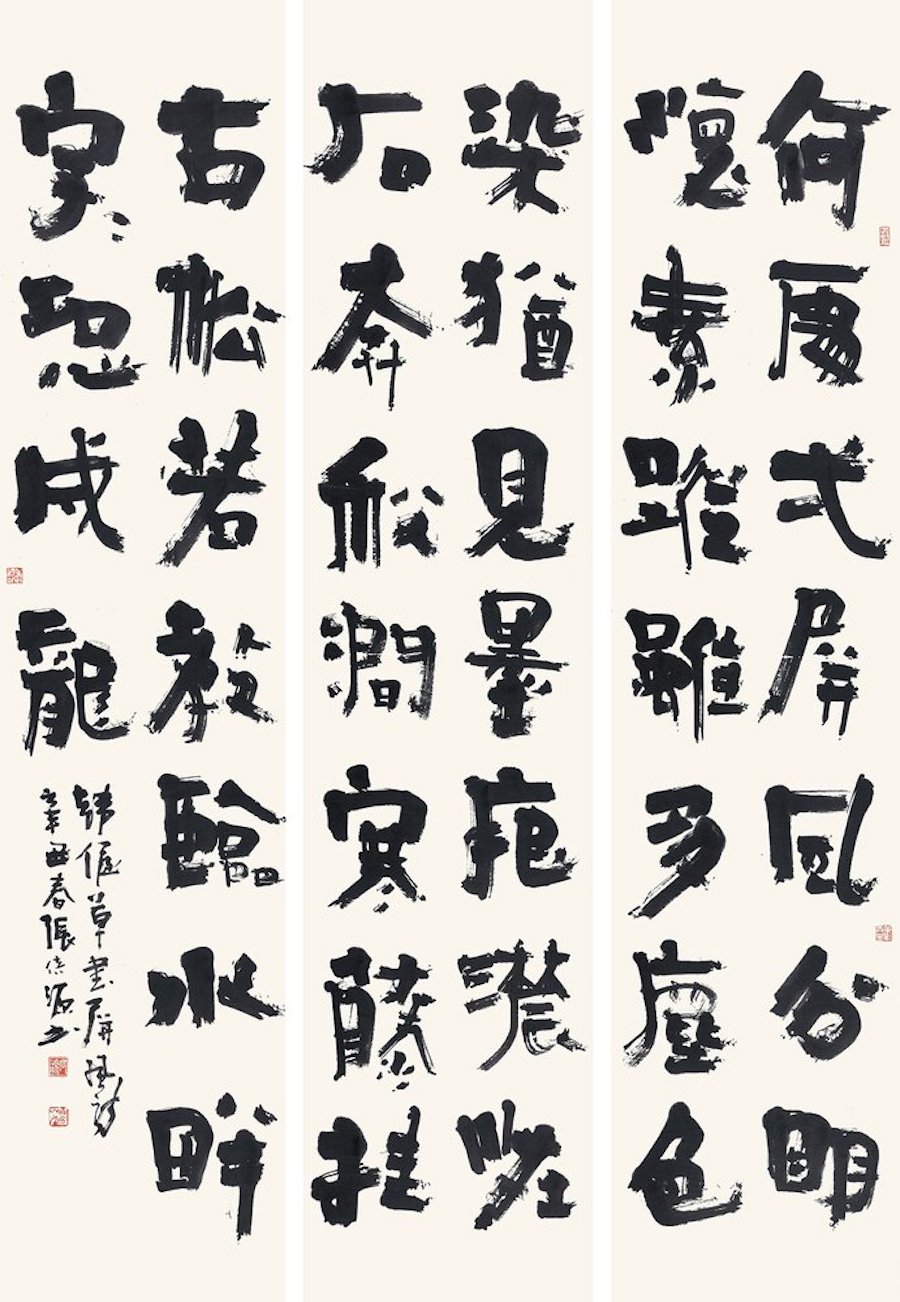 何處弌屏風分明
懷素蹤雖多塵色
染猶見墨痕濃怪
石奔秋澗寒藤挂
古松若教臨水畔
字〻恐成龍
韓偓草書屏風詩
辛丑春張